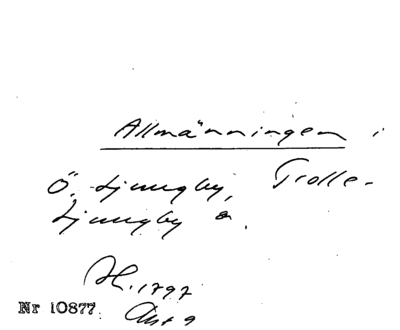 Allmänningen i
Ö. Ljungby, Trolle-
Ljungby
H. 1797
Nr 10877